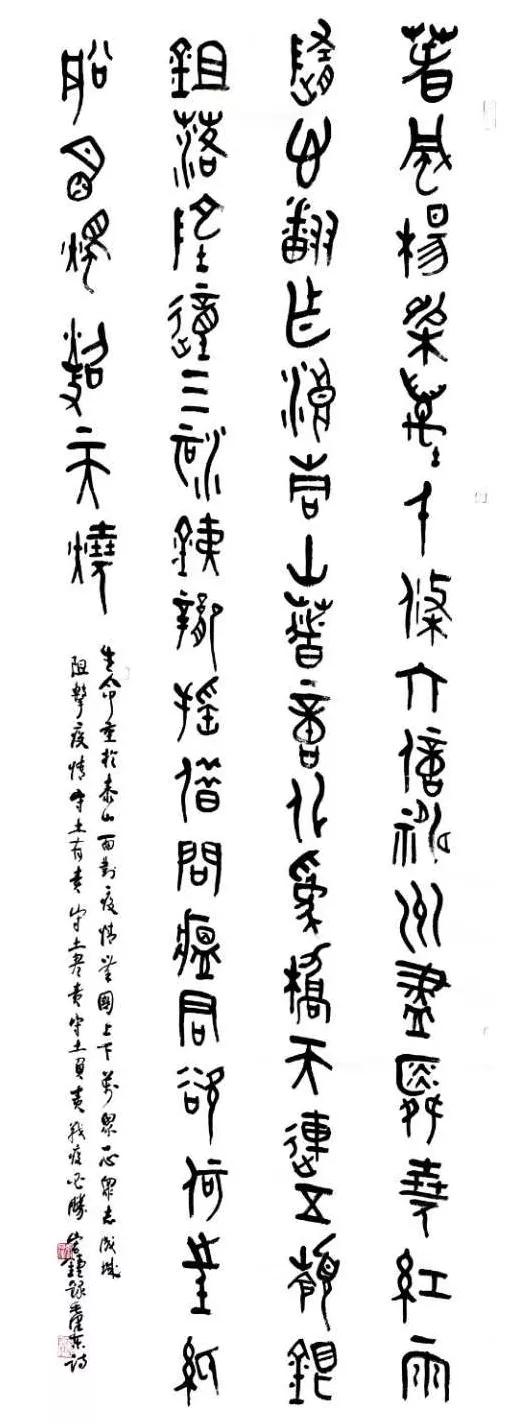 春風楊柳萬千條六億神州盡舜堯紅雨
隨心翻作浪青山著意化為橋天連五嶺銀
鉏落地動三河鐵臂搖借問瘟君欲何往紙
船明燭照天燒
生命重於泰山面對疫情舉國上下萬眾一心眾志成城
阻擊疫情守土有責守土盡責守土負責戰疫必勝 錄毛澤東詩